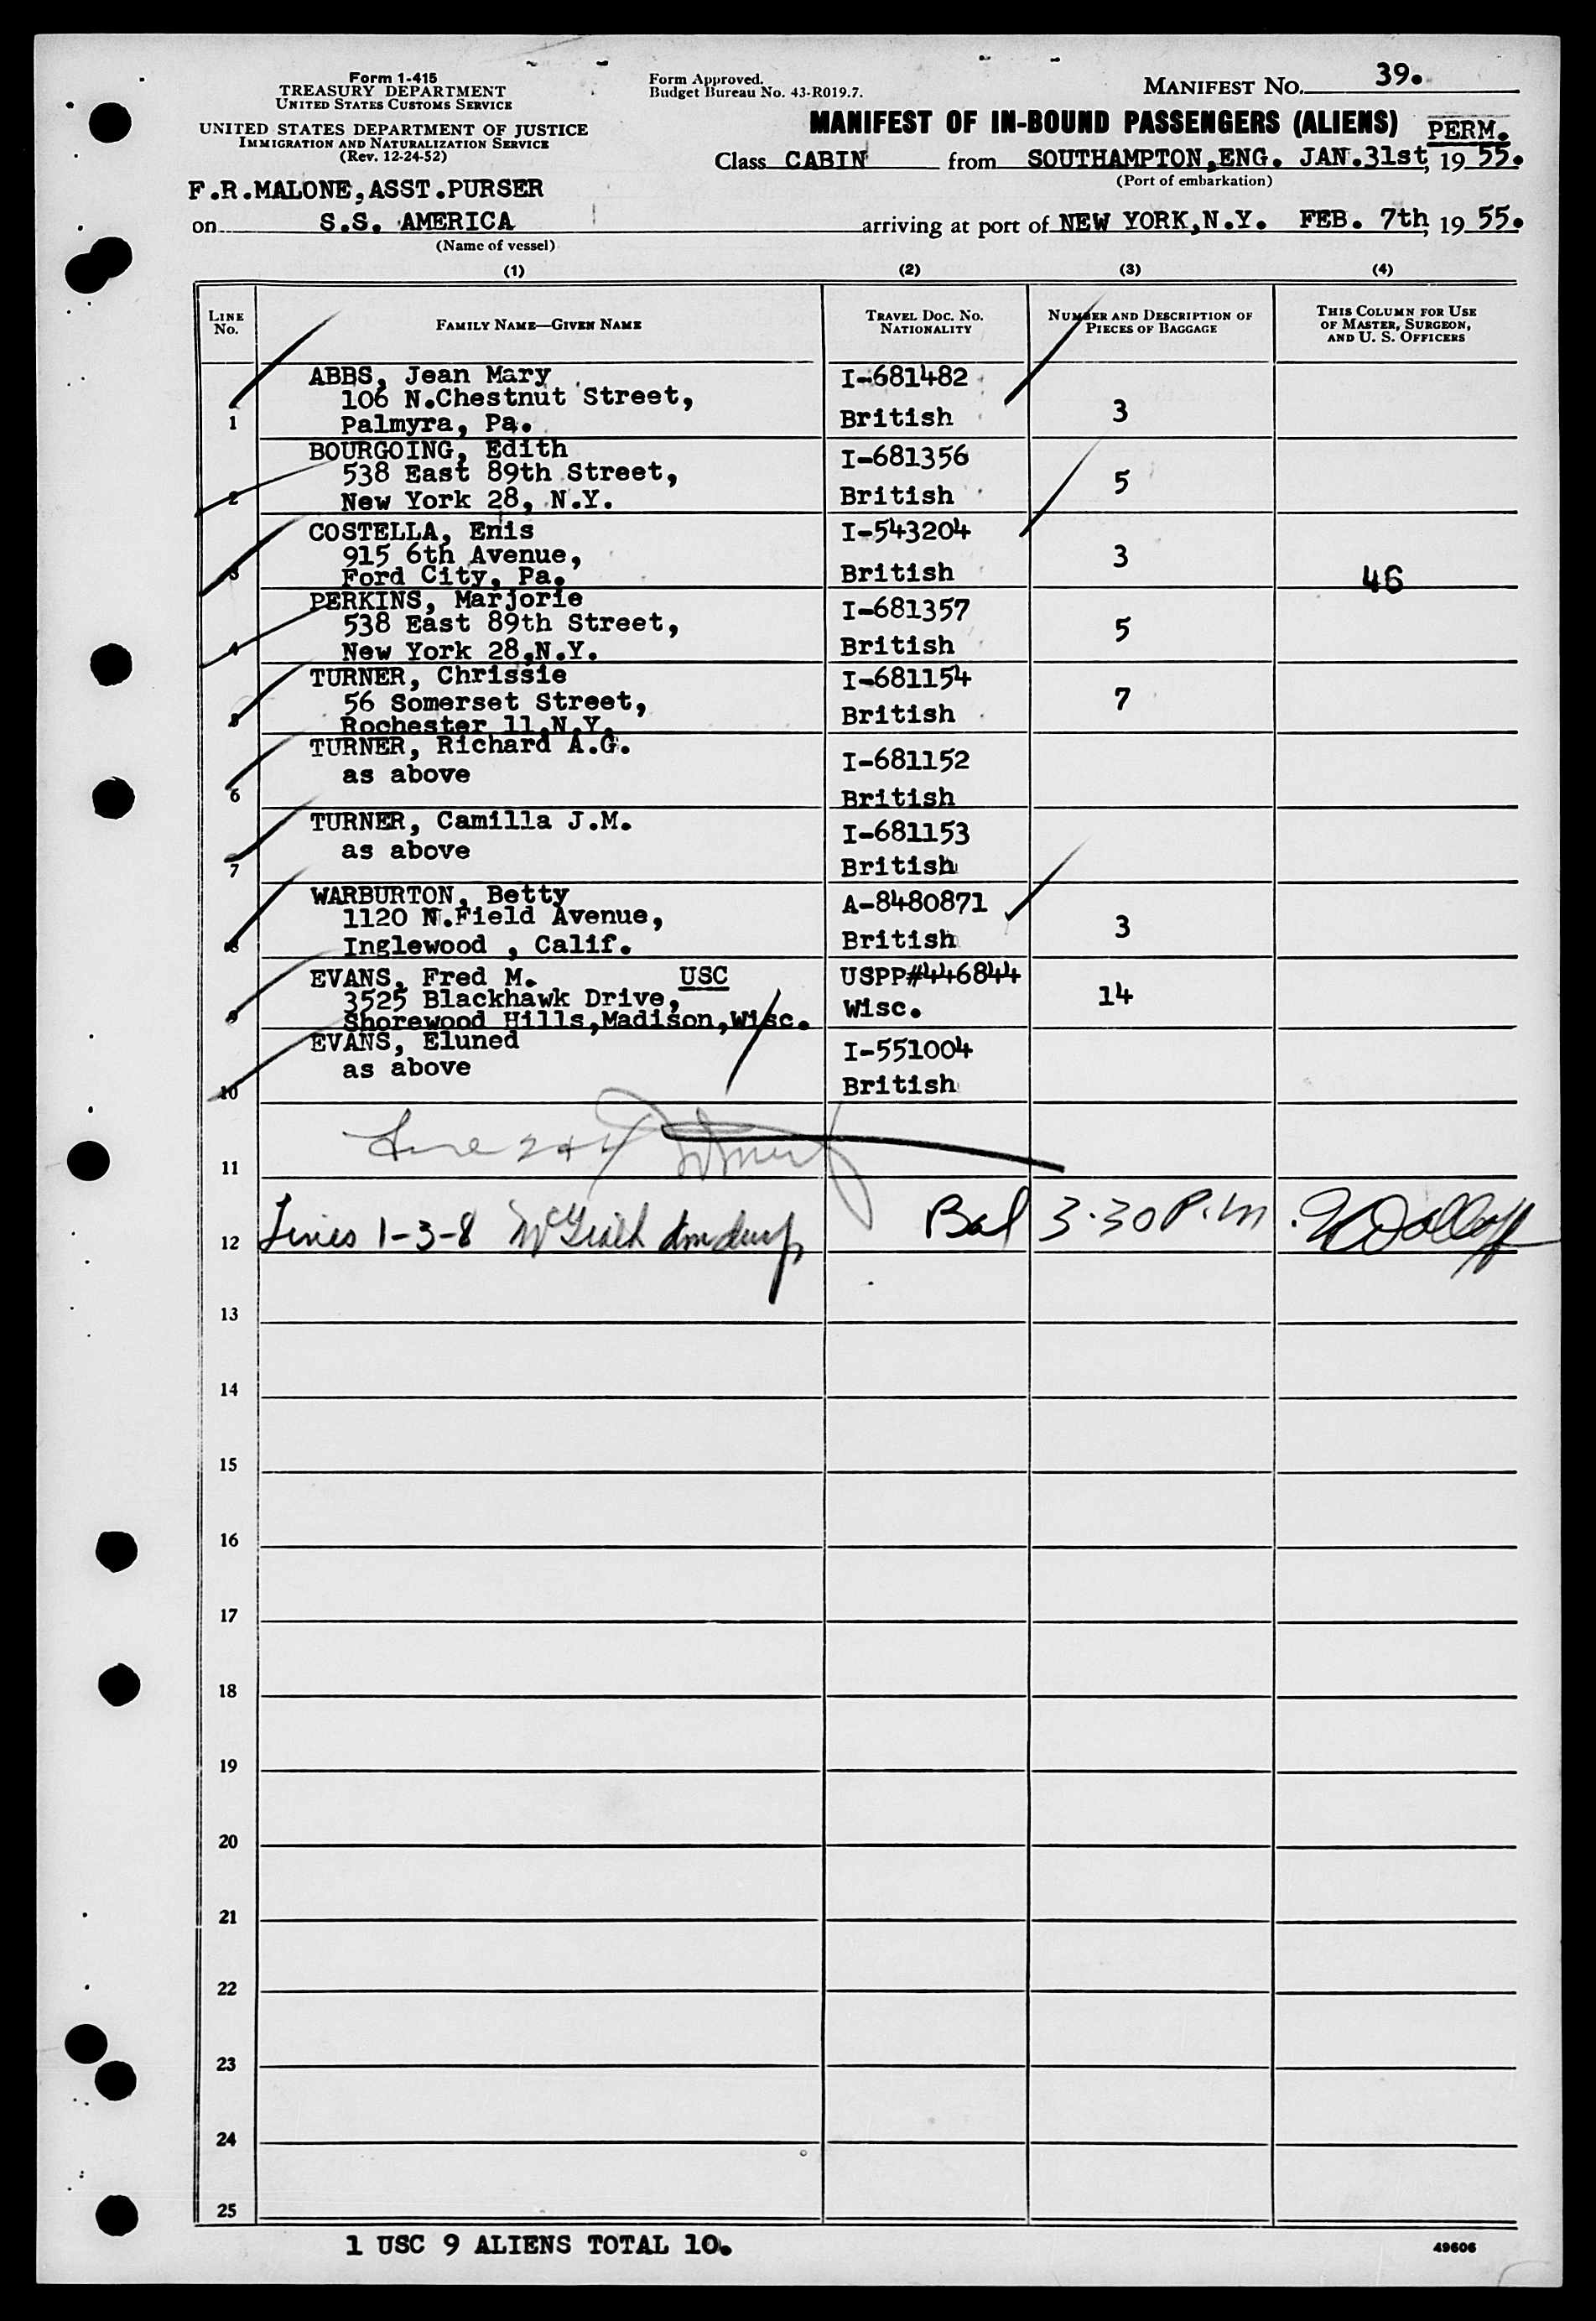 Form 1-415
TREASURY DEPARTMENT
UNITED STATES CUSTOMS SERVICE
UNITED STATES DEPARTMENT OF JUSTICE
IMMIGRATION AND NATURALIZATION SERVICE
(Rev. 12-24-52)
Form Approved.
Budget Bureau No. 43-R019.7.
MANIFEST No. 39.
MANIFEST OF IN-BOUND PASSENGERS (ALIENS) PERM.
Class CABIN from SOUTHAMPTON,ENG. JAN.31st, 19 55.
(Port of embarkation)
F.R.MALONE,ASST.PURSER
on S.S. AMERICA arriving at port of NEW YORK,N.Y. FEB. 7th, 19 55.
(Name of vessel)
(1) (2) (3) (4)
LINE No. FAMILY NAME—GIVEN NAME TRAVEL DOC. NO. NATIONALITY NUMBER AND DESCRIPTION OF PIECES OF BAGGAGE THIS COLUMN FOR USE OF MASTER, SURGEON, AND U. S. OFFICERS
ABBS, Jean Mary I-681482
106 N.Chestnut Street,
1 Palmyra, Pa. British 3
BOURGOING, Edith I-681356
538 East 89th Street,
2 New York 28, N.Y. British 5
COSTELLA, Enis I-543204
915 6th Avenue,
3 Ford City, Pa. British 3 46
PERKINS, Marjorie I-681357
538 East 89th Street,
4 New York 28,N.Y. British 5
TURNER, Chrissie I-681154
56 Somerset Street,
5 Rochester 11,N.Y. British 7
TURNER, Richard A.G. I-681152
as above
6 British
TURNER, Camilla J.M. I-681153
as above
7 British
WARBURTON, Betty A-8480871
1120 N.Field Avenue,
8 Inglewood , Calif. British 3
EVANS, Fred M. USC USPP#446844
3525 Blackhawk Drive,
9 Shorewood Hills,Madison,Wisc. Wisc. 14
EVANS, Eluned I-551004
as above
10 British
11 Line 2+4
12 Lines 1-3-8 Bal 3.30 P.M
13
14
15
16
17
18
19
20
21
22
23
24
25
1 USC 9 ALIENS TOTAL 10.
49606